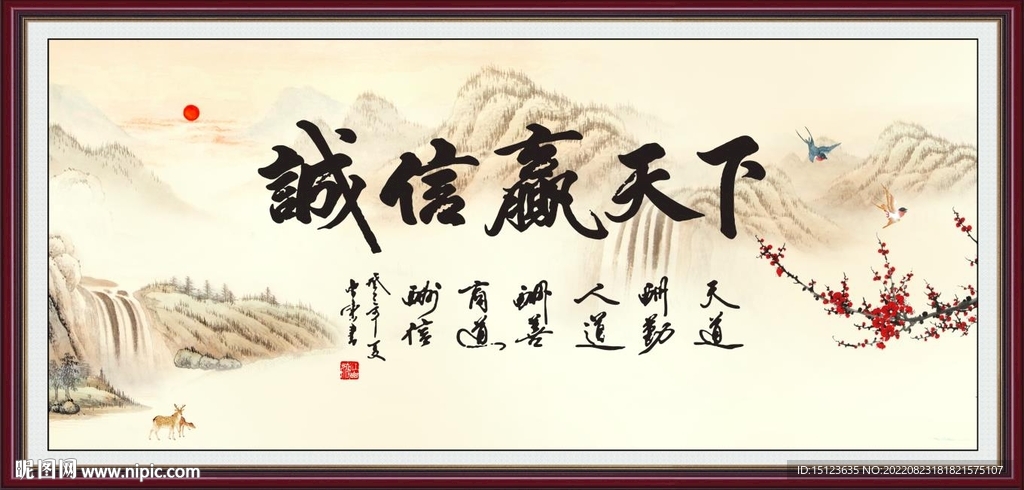 誠信贏天下
天道
酬勤
人道
酬善
商道
酬信
昵图网 www.nipic.com
ID:15123635 NO:20220823181821575107